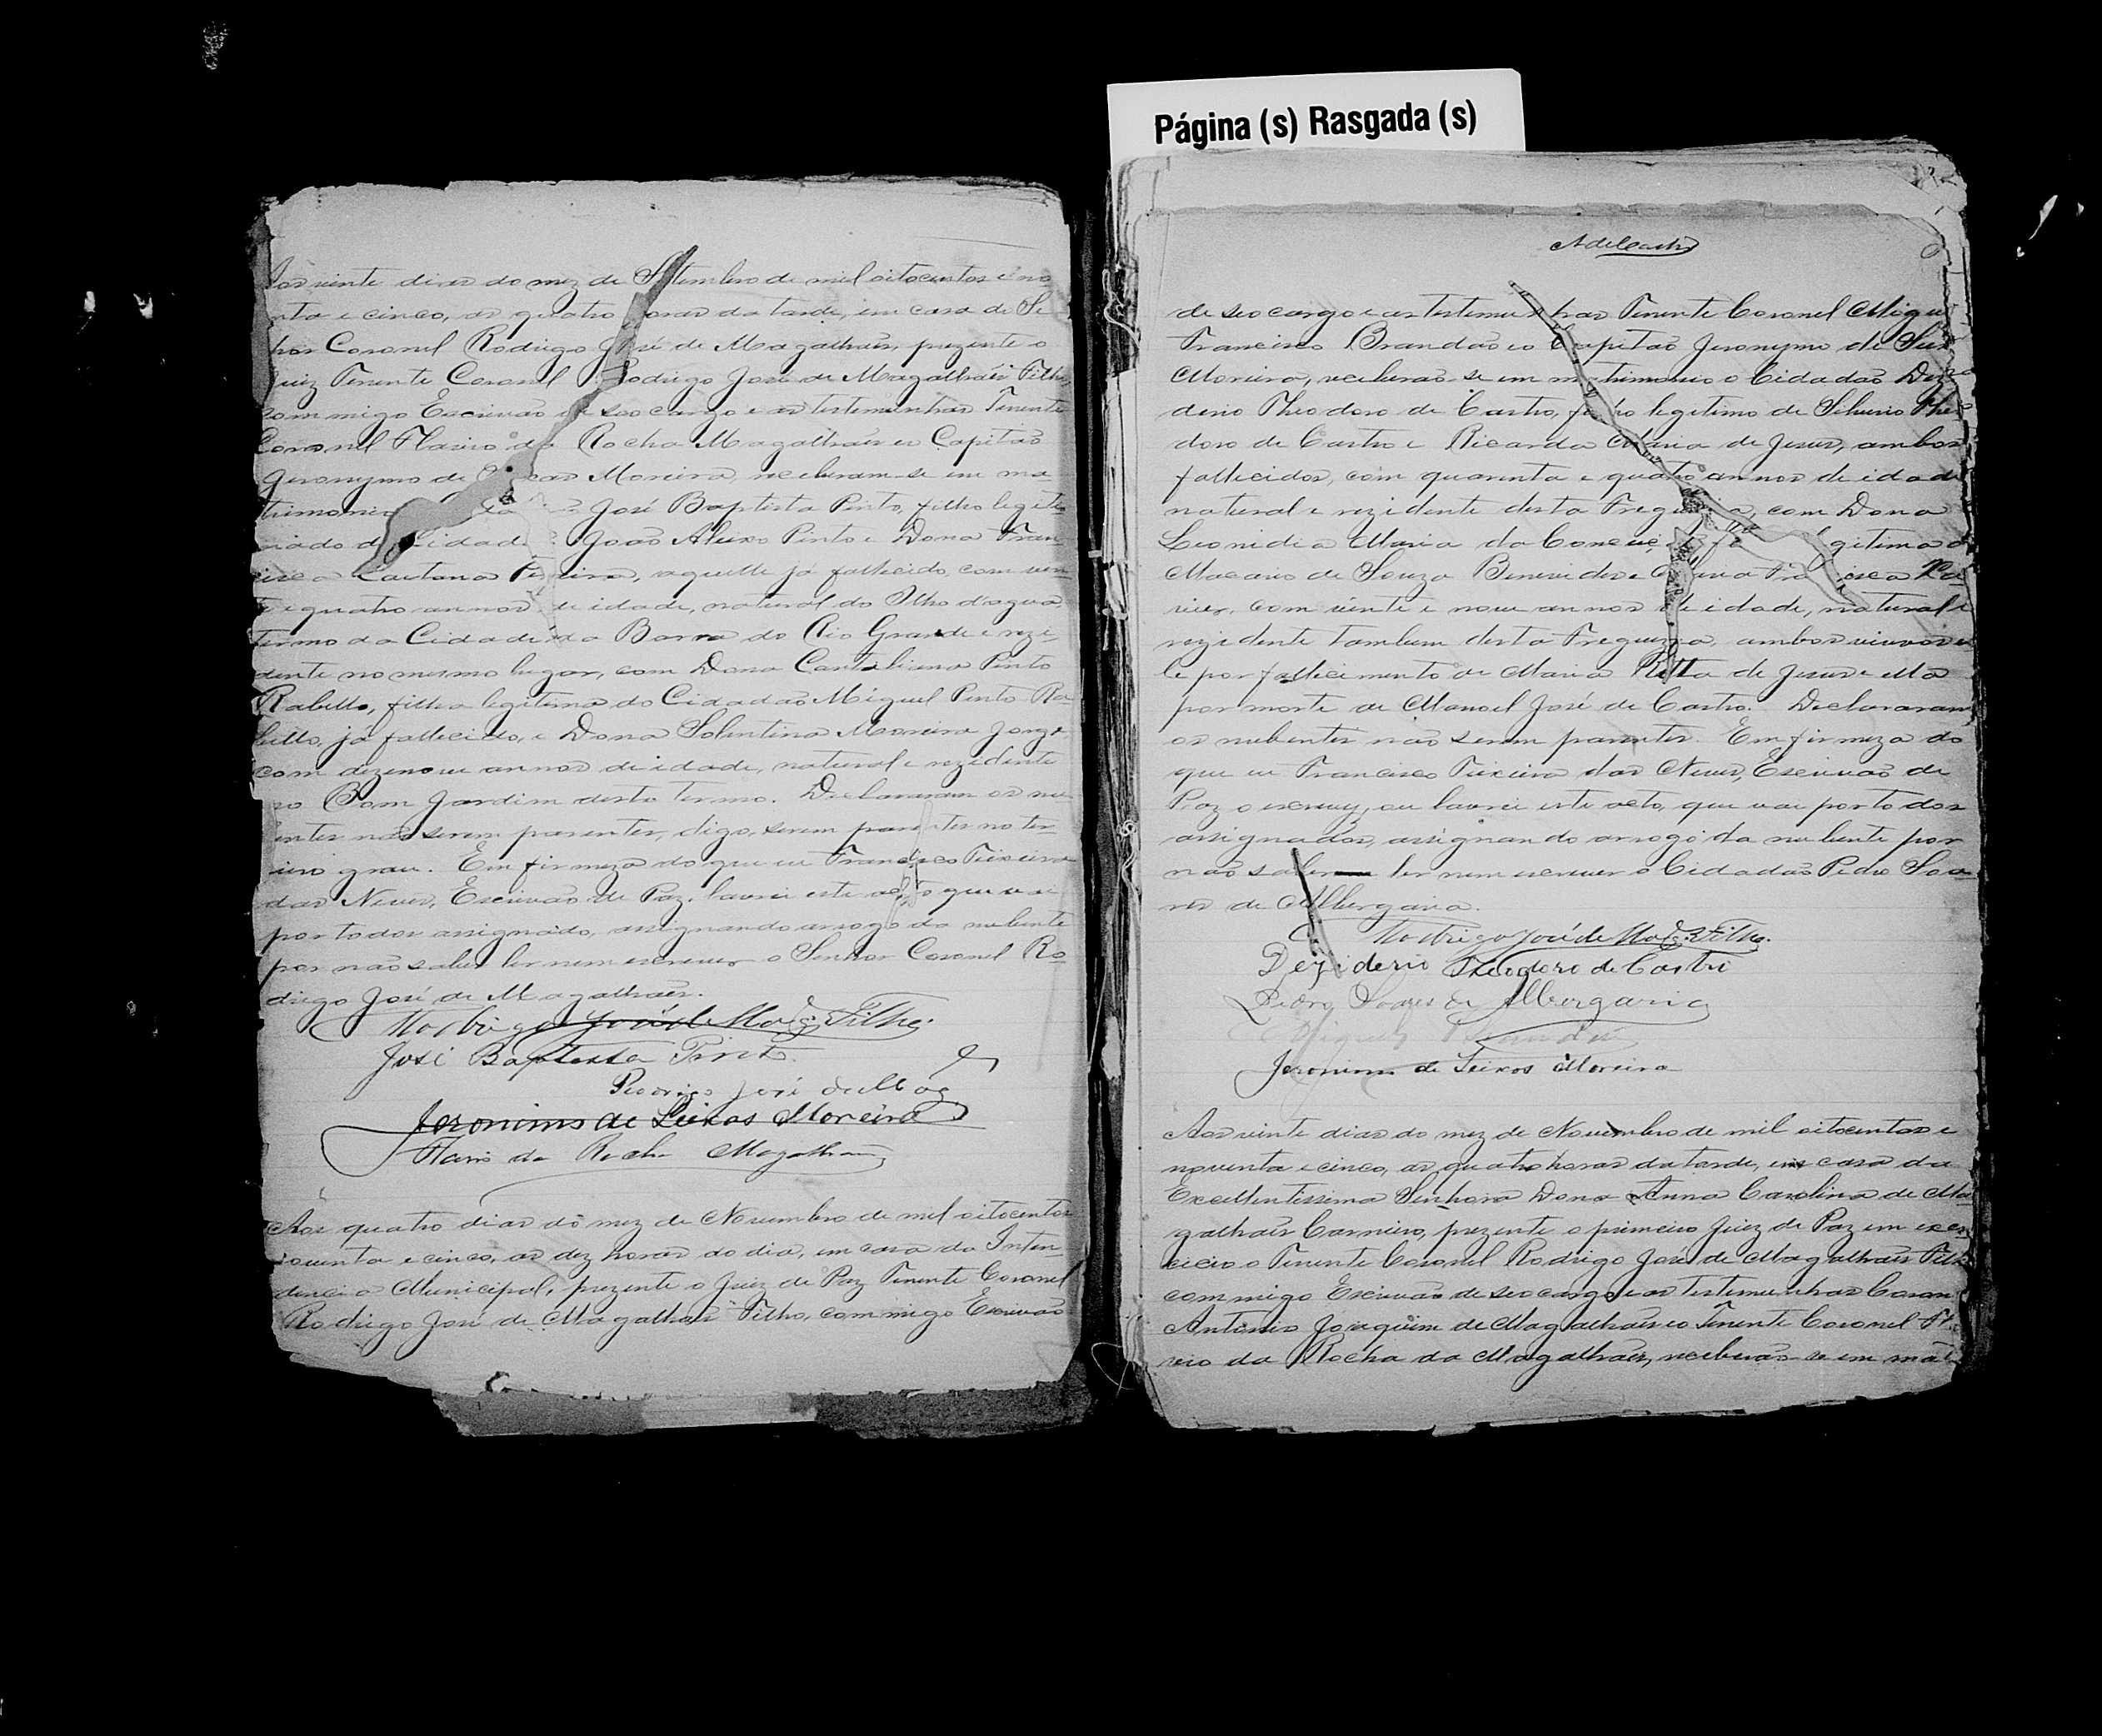 Aos vinte dias do mez de Setembro de mil oitocentos e no
nta e cinco, as quatro horas da tarde, em casa do Se
nhor Coronel Rodrigo José de Magalhães, prezente o
Juiz Tenente Coronel Rodrigo José de Magalhães Filho,
commigo Escrivão de seo cargo e as testemunhas Tenente
Coronel Flavio da Rocha Magalhães e o Capitão
Jeronymo de Moreira, receberam-se em ma
trimonio José Baptista Pinto, filho legiti
João Aleixo Pinto e Dona Fran
cisca Caetana, aquelle já fallecido, com vin
te e quatro annos de idade, natural do Olho d'agua
termo da Cidade da Barra do Rio Grande e rezi
dente no mesmo lugar, com Dona Pinto
Rabello, filha legitima do Cidadão Miguel Pinto Ra
bello, já fallecido, e Dona Solentina Moreira Jorge
com dezenove annos de idade, natural e rezidente
no Bom Jardim desto termo. Declararam os nu
bentes não serem parentes, digo, serem parentes no ter
ceiro grau. Em firmeza do que eu Francisco Teixeira
das Neves, Escrivão de Paz, lavrei este acto que vai
por todos assignado, assignando arrogo da nubente
por não saber ler nem escrever o Senhor Coronel Ro
drigo José de Magalhães.
Rodrigo José de Magês Filho.
José Baptista Pinto.
Rodrigo José de Mag
Jeronimo de Seixas Moreira
Flavio da Rocha Magalhães
Aos quatro dias do mez de Novembro de mil oitocentos
noventa e cinco, as dez horas do dia, em casa da Inten
dencia Municipal, prezente o Juiz de Paz Tenente Coronel
Rodrigo José de Magalhães Filho, commigo Escrivão
Página (s) Rasgada (s)
de seo cargo e as testemunhas Tenente Coronel Migue
Francisco Brandão e o Capitão Jeronymo de Seix
Moreira, receberão-se em matrimonio o Cidadão Dezi
derio Theodoro de Castro, filho legitimo de Silverio Theo
doro de Castro e Ricarda Maria de Jesus, ambos
fallecidos, com quarenta e quatro annos de idade
natural e rezidente desta Freguezia, com Dona
Leonidia Maria da Conceição legitima d
Macario de Souza Benevides e Maria Francisca Xa
vier, com vinte e nove annos de idade, natural e
rezidente tambem desta Freguezia, ambos viuvos el
le por fallecimento de Maria Ritta de Jesus e ella
por morte de Manoel José de Castro. Declararam
os nubentes não serem parentes. Em firmeza do
que eu Francisco Teixeira das Neves, Escrivão de
Paz o escrevy, ou lavrei este acto, que vae por todos
assignados, assignando arrogo da nubente por
não saber ler nem escrever o Cidadão Pedro Soa
res de Albergaria.
Rodrigo José de Magês Filho.
Deziderio Theodoro de Castro
Pedro Soares de Albergaria
Miguel Brandão
Jeronimo de Seixas Moreira
Aos vinte dias do mez de Novembro de mil oitocentos e
noventa e cinco, as quatro horas da tarde, em casa da
Excellentissima Senhora Dona Anna Carolina de Ma
galhães Carneiro, prezente o primeiro Juiz de Paz em exer
cicio o Tenente Coronel Rodrigo José de Magalhães Filho
commigo Escrivão de seo cargo e as testemunhas Coron
Antonio Joaquim de Magalhães e o Tenente Coronel Fla
vio da Rocha da Magalhães, receberão-se em mat